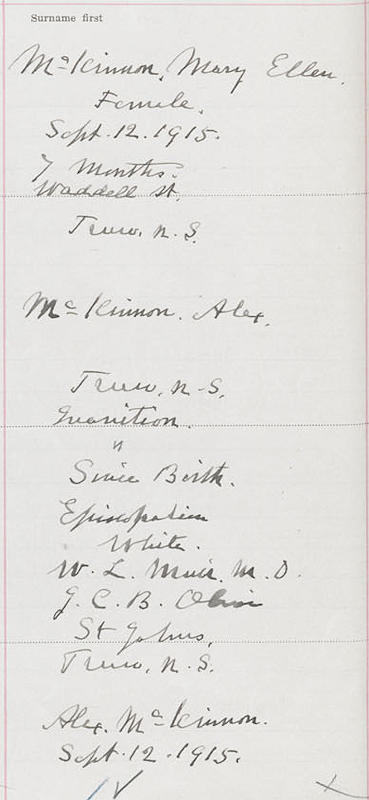 Surname first
McKinnon, Mary Ellen.
Female.
Sept. 12. 1915.
7 Months.
Waddell St.
Truro, N.S.
McKinnon. Alex.
Truro, N-S.
Inanition.
"
Since Birth.
Episcopalian
White.
W. L. Muir, M.D.
J. C. B. Olive
St Johns,
Truro, N.S.
Alex. McKinnon.
Sept. 12. 1915.